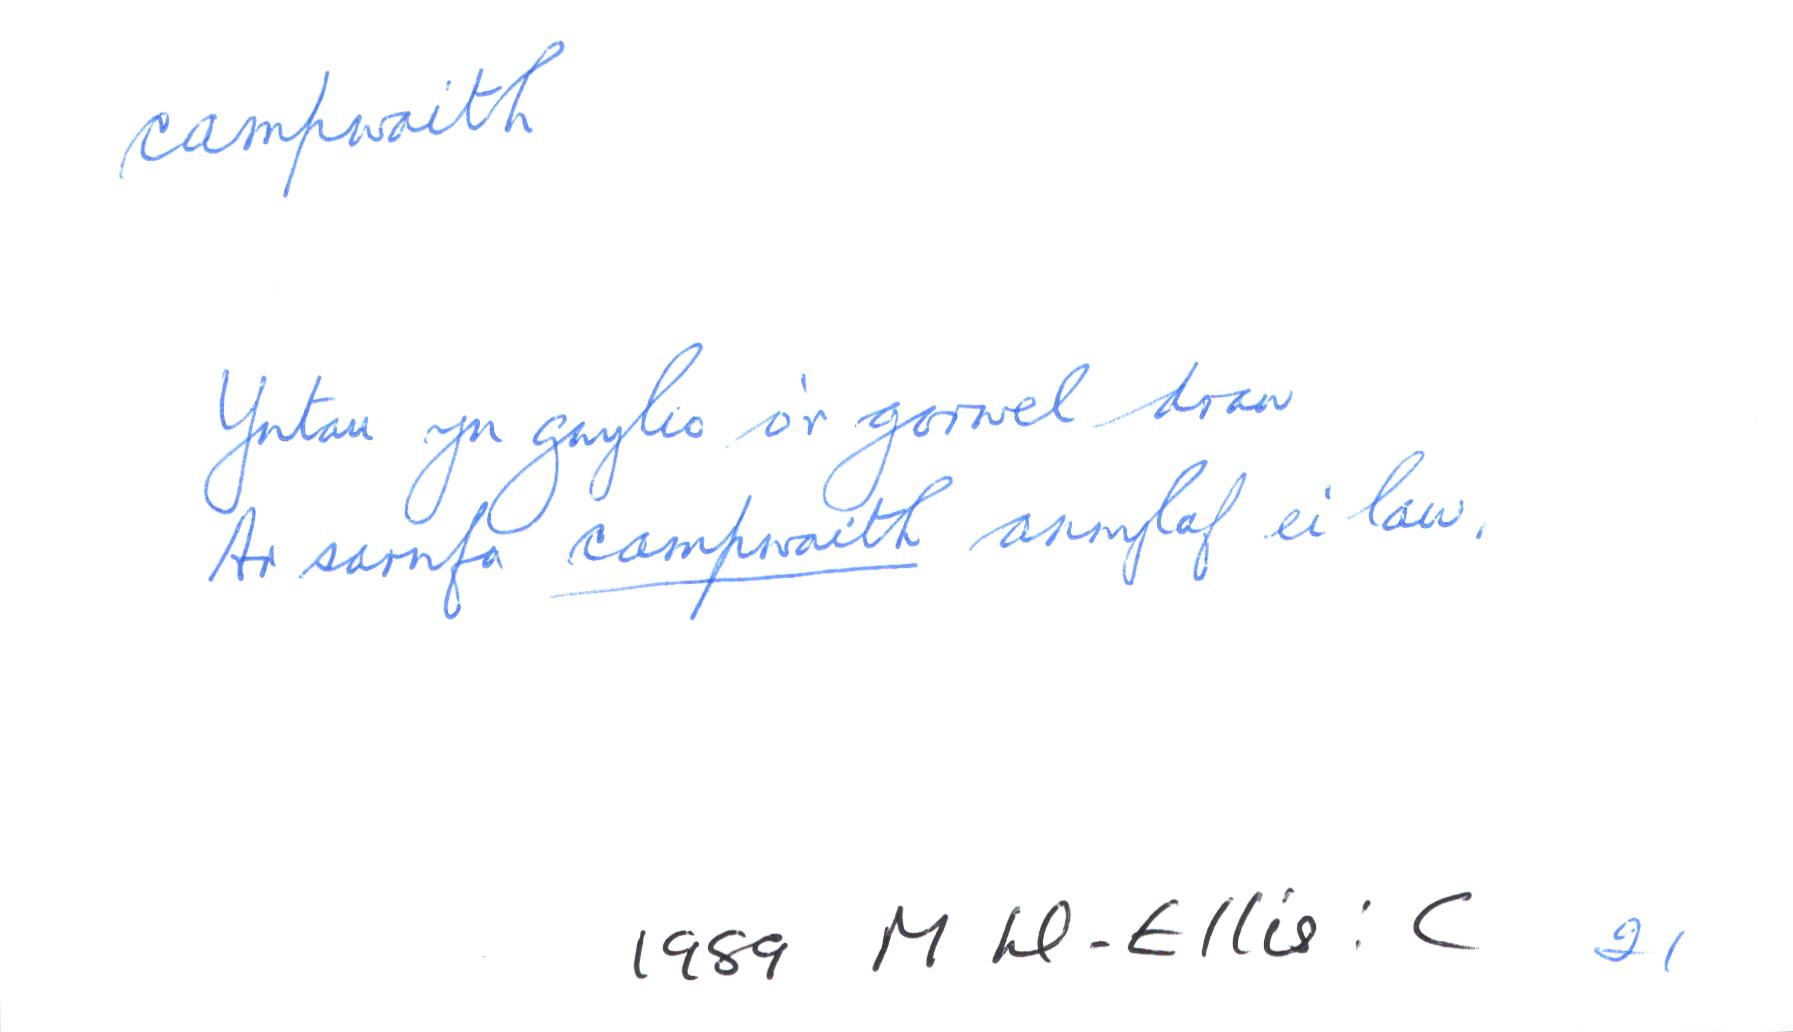 campwaith
Yntau yn gwylio o'r gorwel draw
Ar sarnfa campwaith annylaf ei law.
1989 M Ll-Ellis: C 21